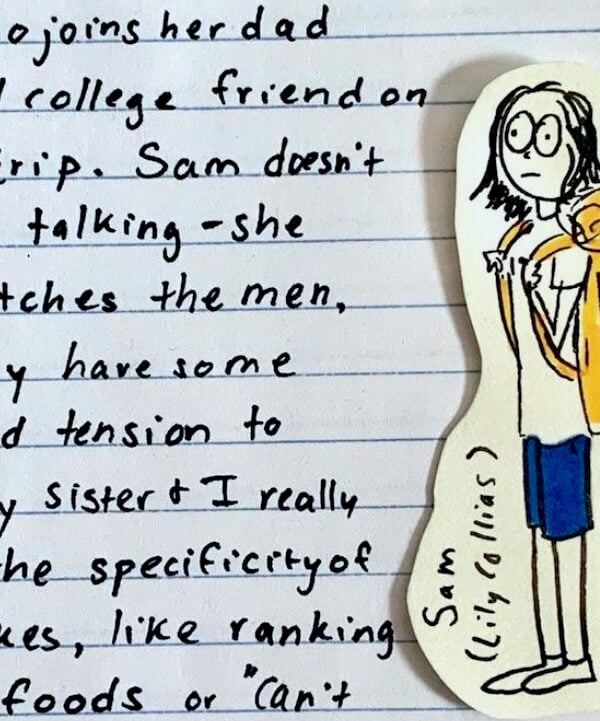 o joins her dad
college friend on
rip. Sam doesn't
talking - she
tches the men,
y have some
d tension to
y sister & I really
he specificity of
kes, like ranking
foods or "Can't
Sam
(Lily Collias)